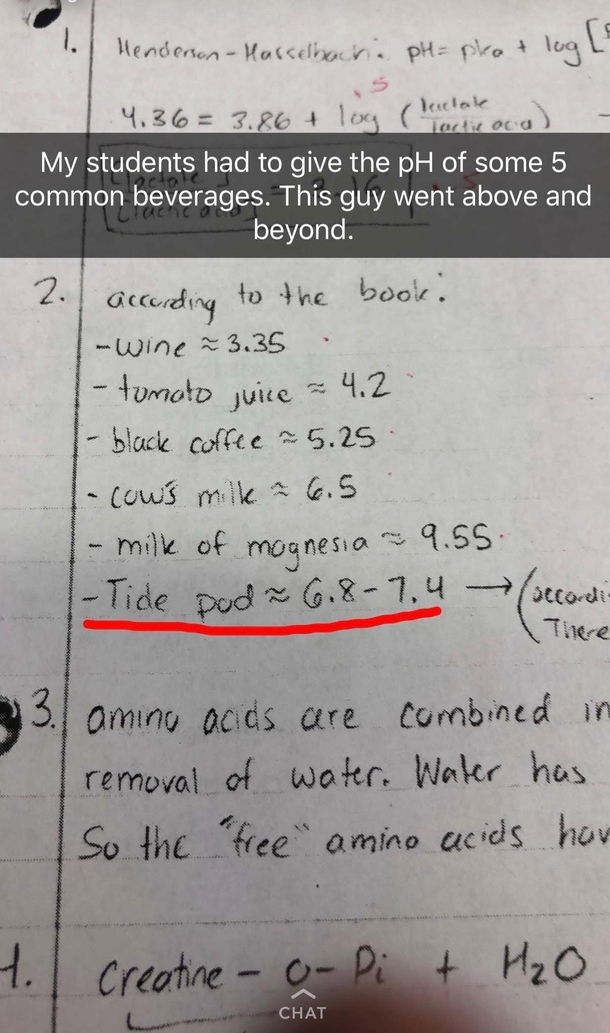 1. Henderson-Hasselbach: pH = pka + log [
.5
4.36 = 3.86 + log (lactate
lactic acid)
My students had to give the pH of some 5
common beverages. This guy went above and
beyond.
2. according to the book:
- wine ≈ 3.35
- tomato juice ≈ 4.2
- black coffee ≈ 5.25
- cow's milk ≈ 6.5
- milk of magnesia ≈ 9.55
- Tide pod ≈ 6.8-7.4 → (accordi
(There
3. amino acids are combined in
removal of water. Water has
So the "free" amino acids hav
4. Creatine - O - Pi + H2O
CHAT